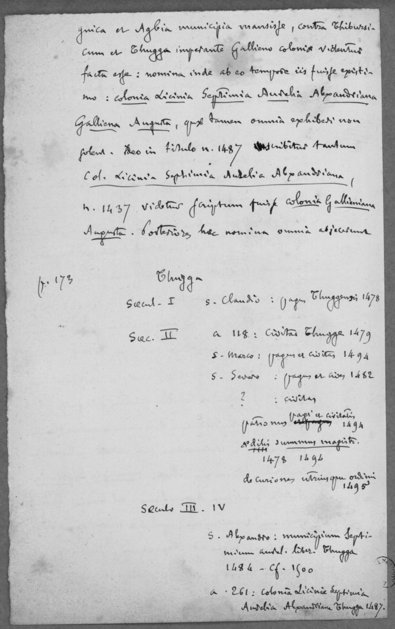 gnica et Agbia municipia mansisse, contra Thibursi-
cum et Thugga imperante Gallieno coloniæ videntur
factæ esse : nomina inde ab eo tempore iis fuisse existi-
mo : colonia Licinia Septimia Aurelia Alexandriana
Galliena Augusta, quæ tamen omnia exhiberi non
solent. Ideo in titulo n. 1487 inscribitur tantum
Col. Licinia Septimia Aurelia Alexandriana,
n. 1437 videtur scriptum fuisse colonia Gallieniana
Augusta. Posteriores hæc nomina omnia abjecerunt
p. 173
Thugga
Sæcul. I s. Claudio : pagus Thuggensis 1478
Sæc. II a 118 : Civitas Thugga 1479
s. Marco : pagus et civitas 1494
s. Severo : pagus et cives 1482
? : civitas
patronus pagi et civitatis 1494
ædilis summus magistr.
1478 1494
decuriones utriusque ordinis
1495
Sæculo III. IV
s. Alexandro : municipium Septi-
mium aurel. liber. Thugga
1484 - Cf. 1500
a. 261 : colonia Licinia Septimia
Aurelia Alexandriana Thugga 1487.